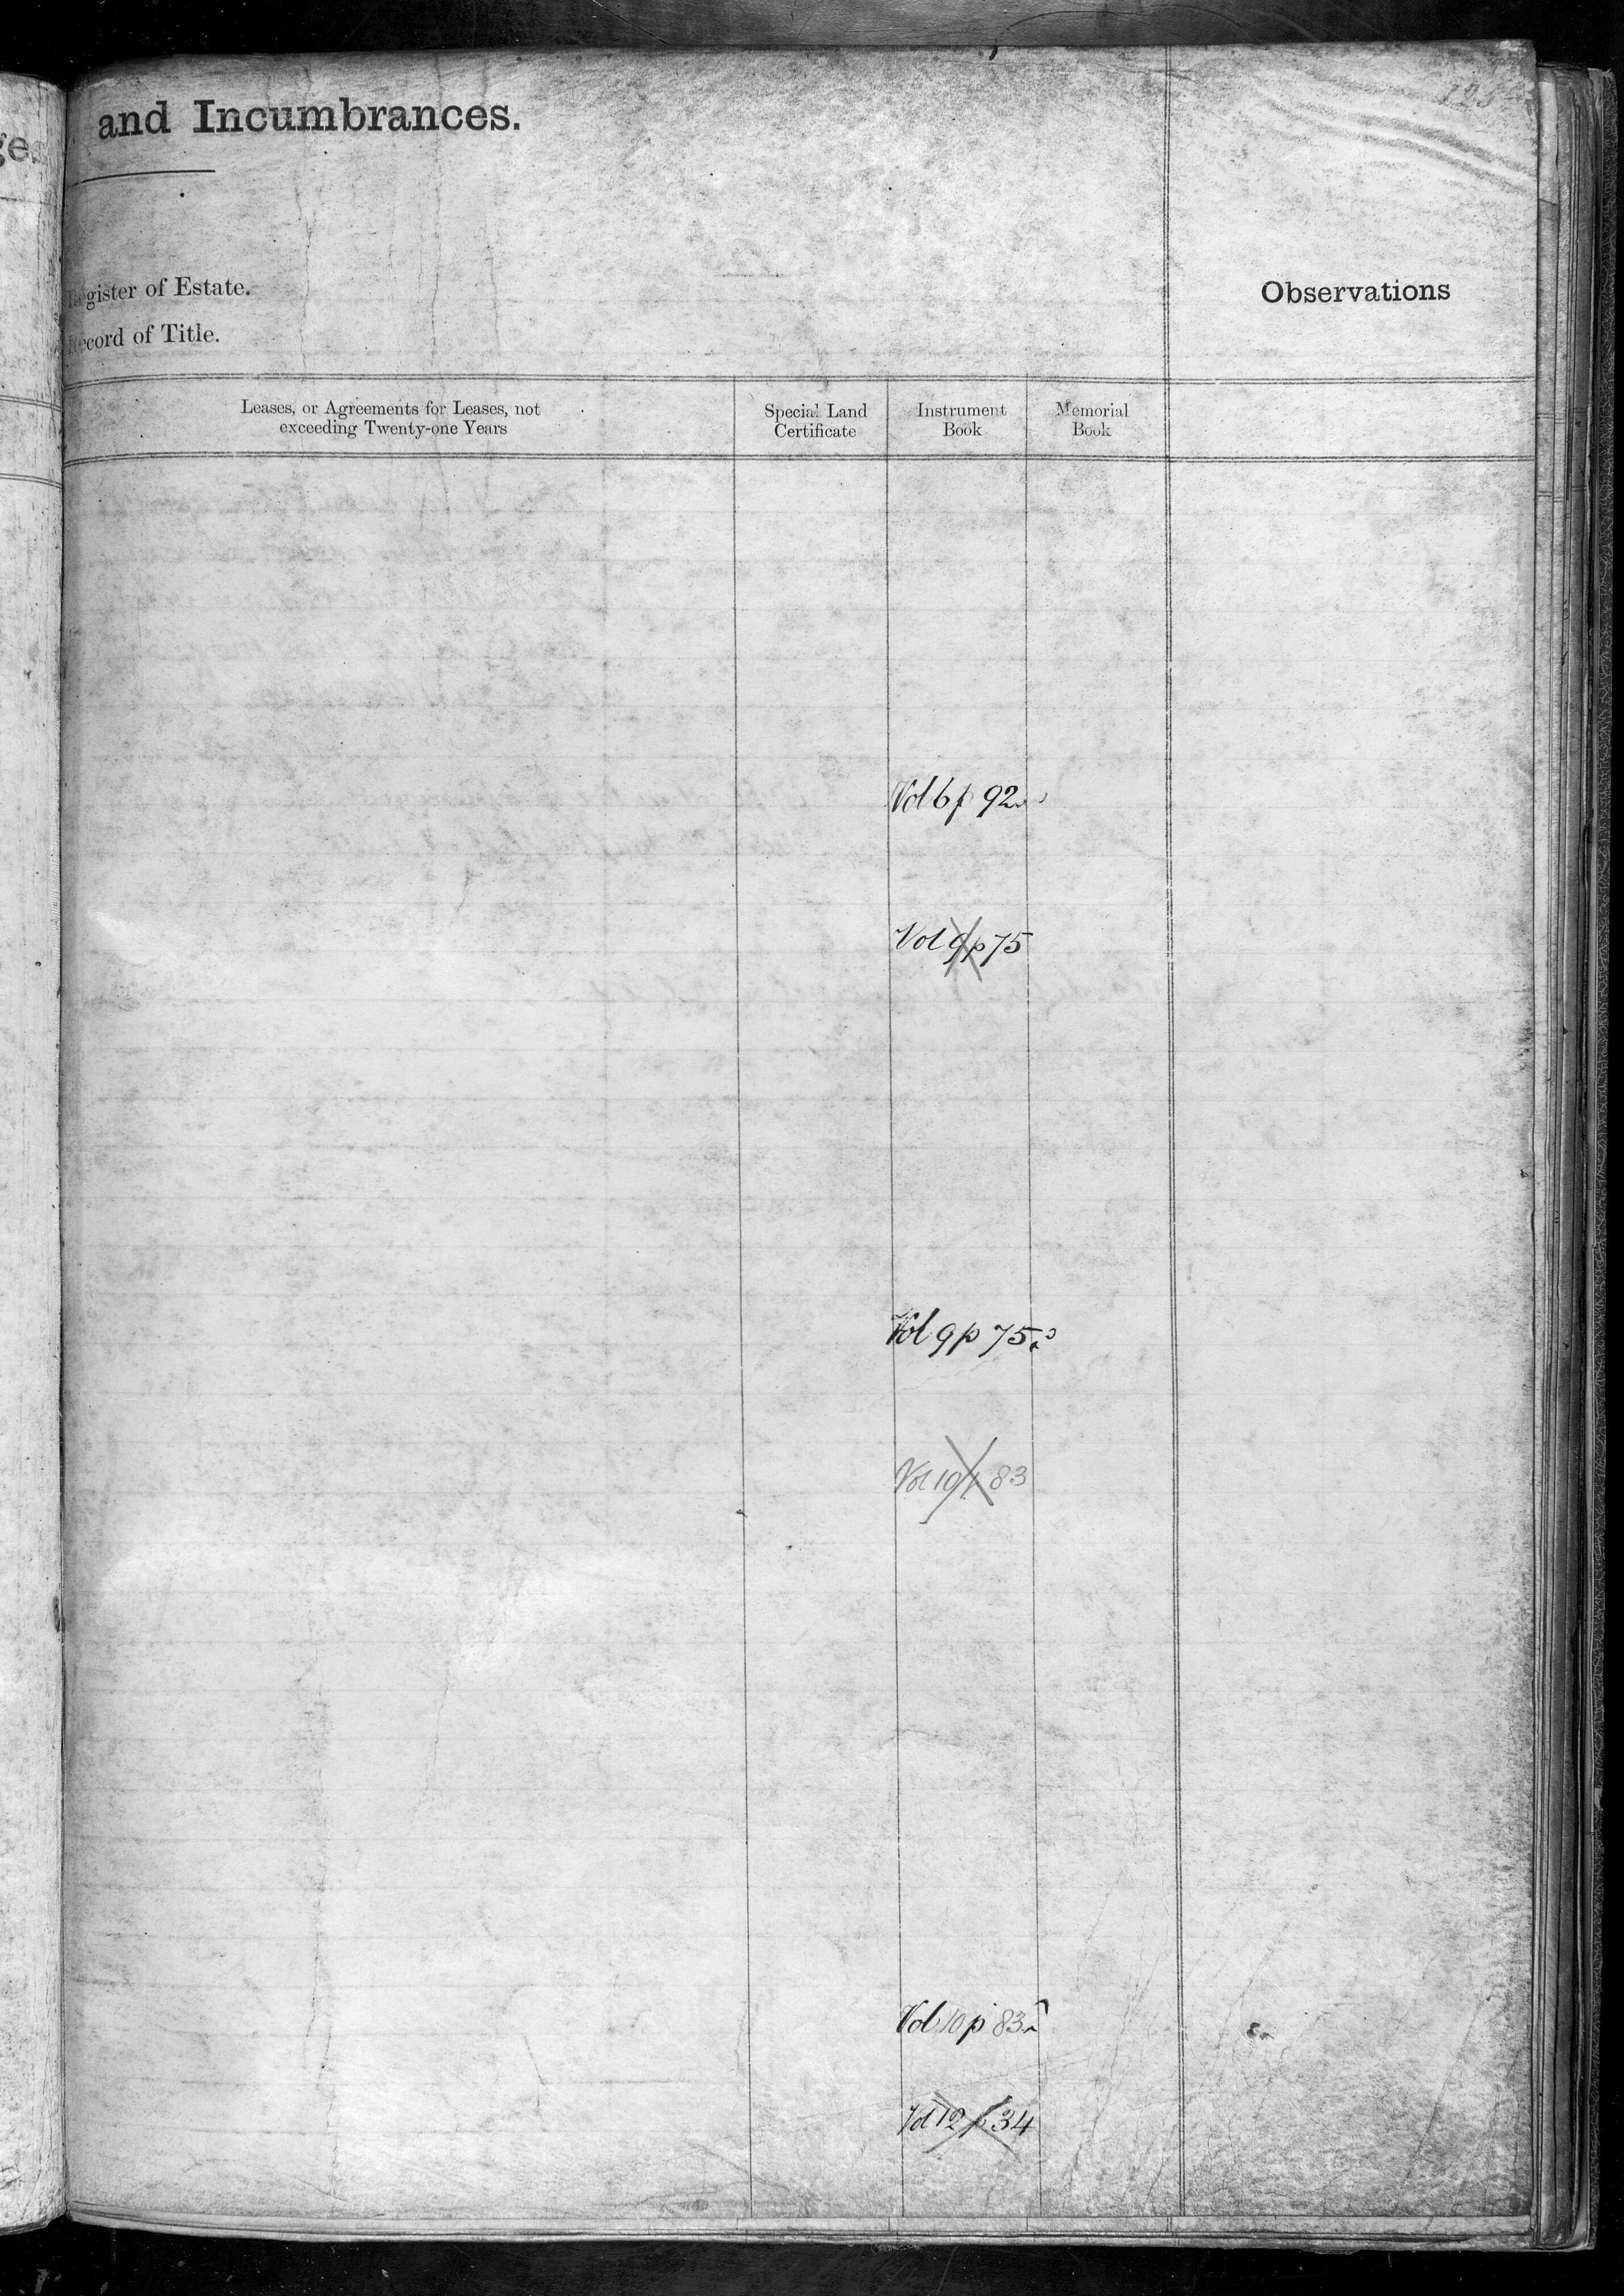 and Incumbrances.
Register of Estate.
Record of Title.
Observations
Leases, or Agreements for Leases, not
exceeding Twenty-one Years
Special Land
Certificate
Instrument
Book
Memorial
Book
Vol 6 p 92
Vol 9 p 75
Vol 9 p 75
Vol 10 p 83
Vol 10 p 83
Vol 12 p 34